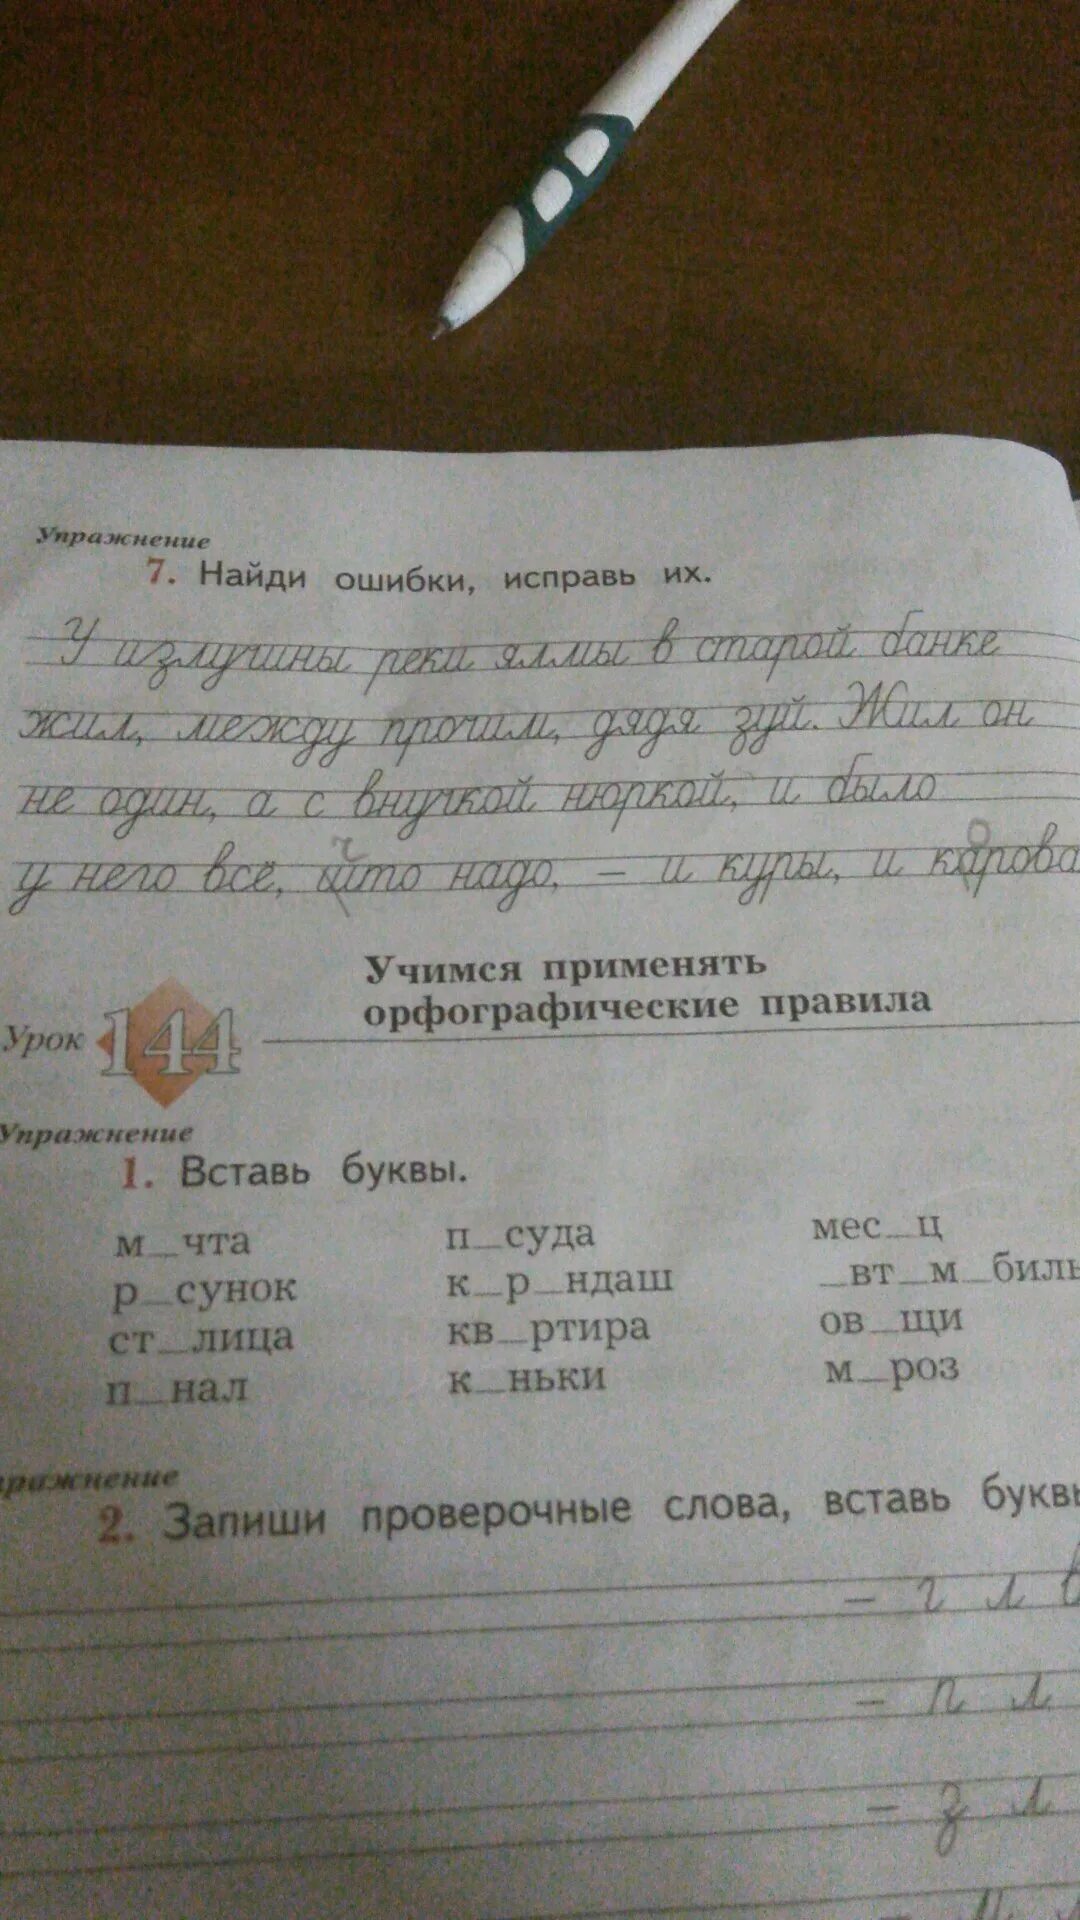 Упражнение
7. Найди ошибки, исправь их.
У излучины реки ялмы в старой банке
жил, между прочим, дядя зуй. Жил он
не один, а с внучкой нюркой, и было
ч о
у него всё, што надо, – и куры, и карова
Учимся применять
орфографические правила
Урок 144
Упражнение
1. Вставь буквы.
м_чта п_суда мес_ц
р_сунок к_р_ндаш _вт_м_биль
ст_лица кв_ртира ов_щи
п_нал к_ньки м_роз
ражнение
2. Запиши проверочные слова, вставь буквы
– г л в
– п л
– з л